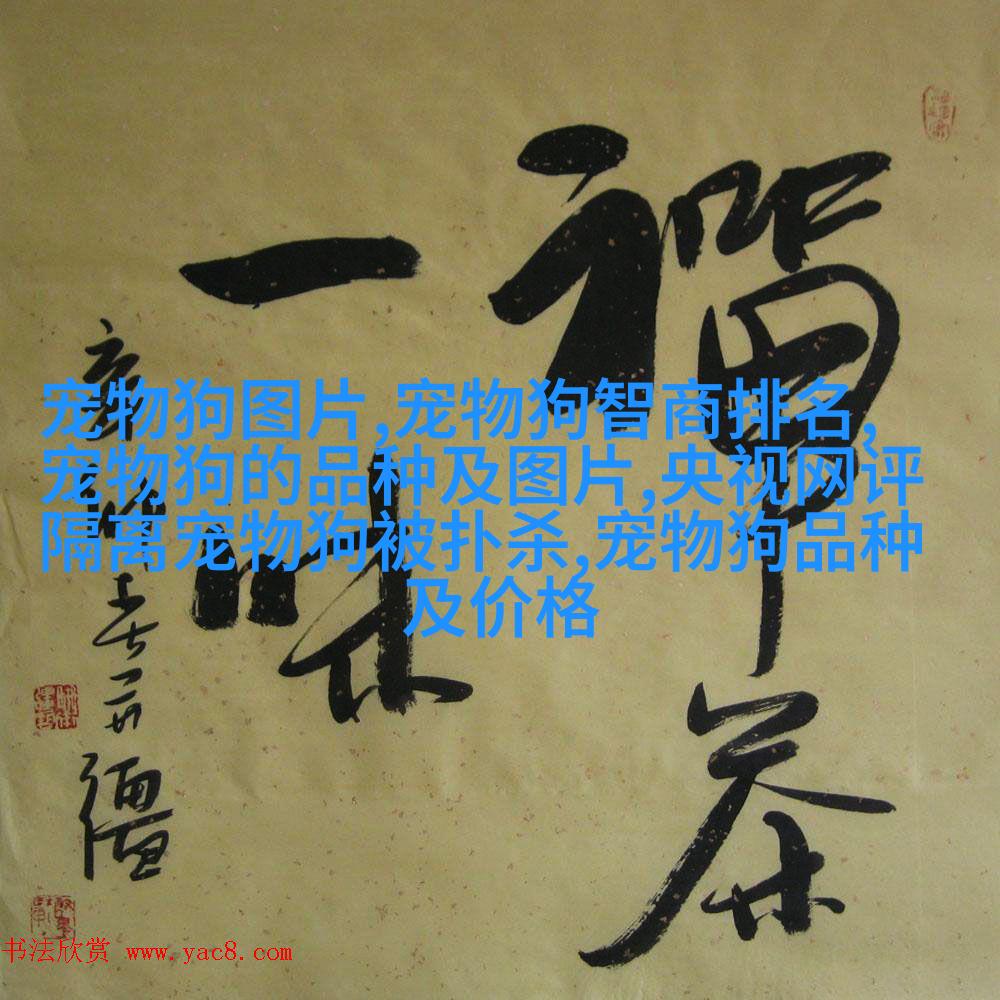 禅茶
一味
宠物狗图片,宠物狗智商排名,
宠物狗的品种及图片,央视网评
隔离宠物狗被扑杀,宠物狗品种
及价格
书法欣赏 www.yac8.com